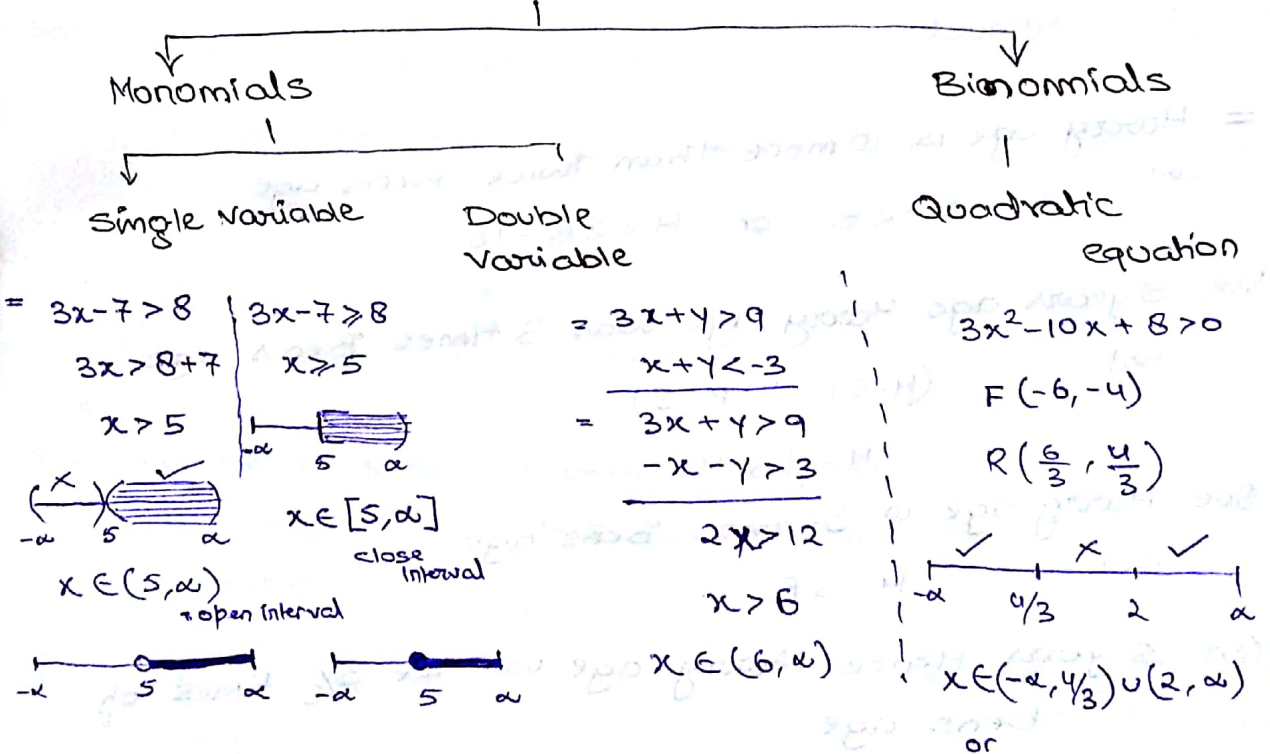 Monomials
Binomials
Single variable
Double
variable
Quadratic
equation
= 3x-7>8
3x>8+7
x>5
x ✓
-∝ 5 ∝
x∈(5,∝)
open interval
-∝ 5 ∝
3x-7⩾8
x⩾5
-∝ 5 ∝
x∈[5,∝]
close
interval
-∝ 5 ∝
= 3x+y>9
x+y<-3
= 3x+y>9
-x-y>3
2x>12
x>6
x∈(6,∝)
3x²-10x+8>0
F(-6,-4)
R(6/3, 4/3)
✓ x ✓
-∝ 4/3 2 ∝
x∈(-∝,4/3)∪(2,∝)
or